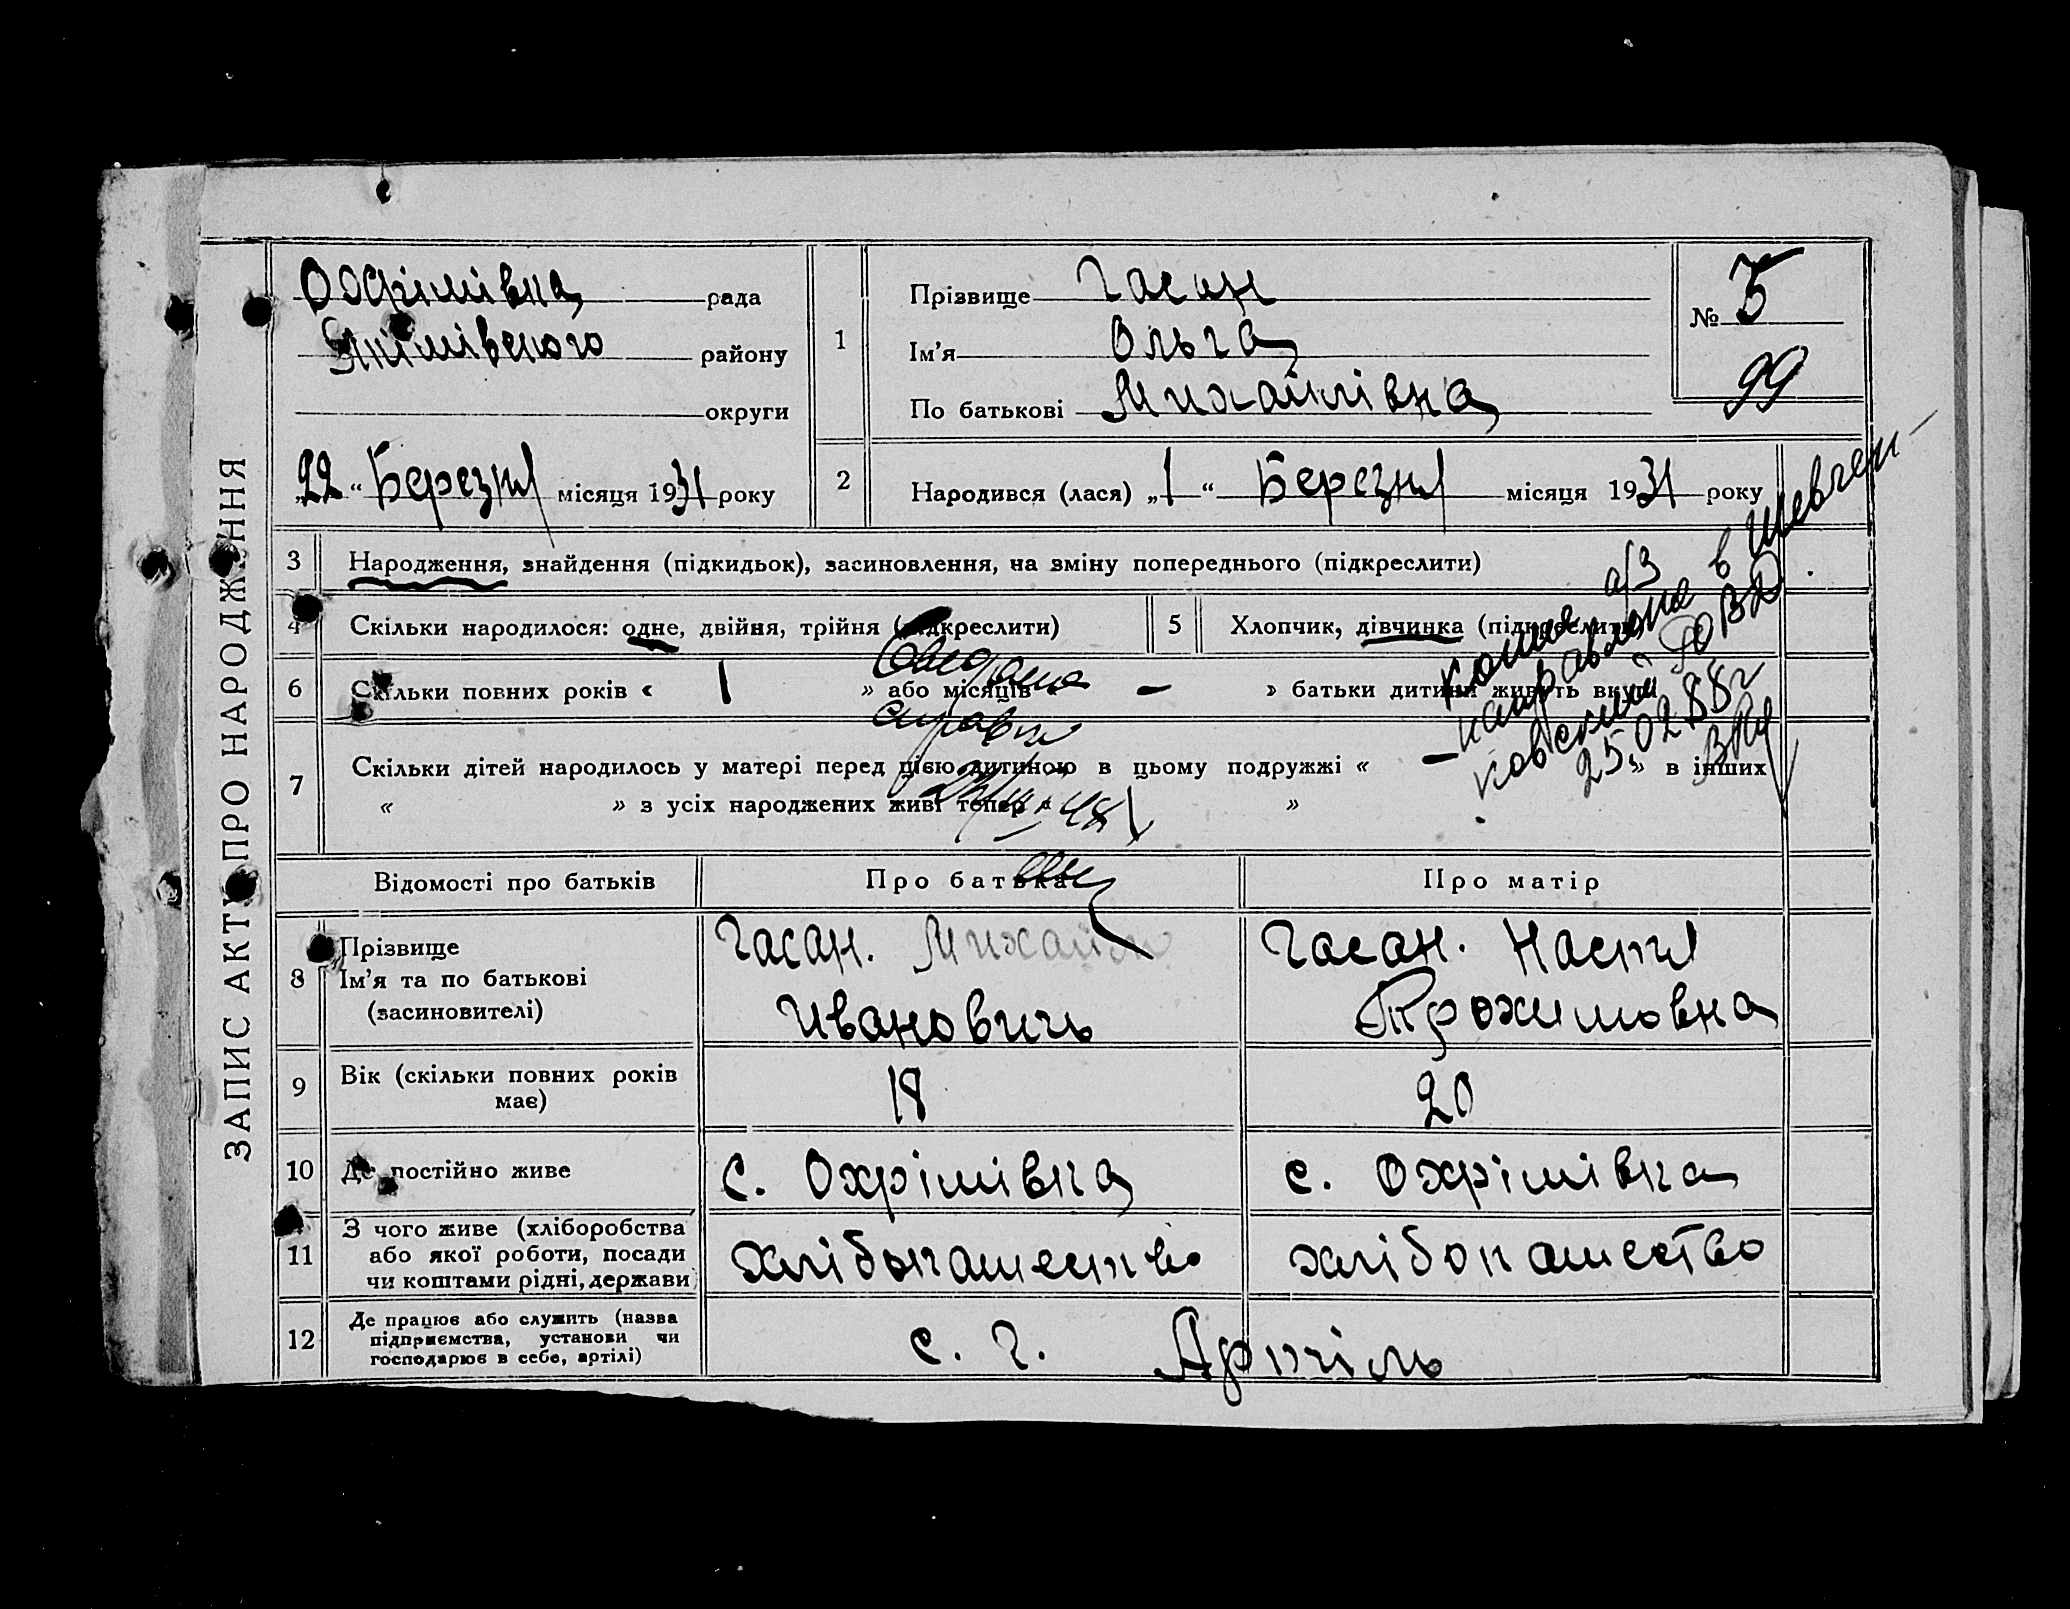 ЗАПИС АКТУ ПРО НАРОДЖЕННЯ
Охрімівна рада
Якімівского району
округи
„22“ Березня місяця 1931 року
1
Прізвище Гасан
Ім’я Ольга
По батькові Михайлівна
№ 5
99
2 Народився (лася) „1“ Березня місяця 1931 року
3 Народження, знайдення (підкидьок), засиновлення, на зміну попереднього (підкреслити)
4 Скільки народилося: одне, двійня, трійня (підкреслити)
5 Хлопчик, дівчинка (підкреслити)
6 Скільки повних років « 1 » або місяців « — » батьки дитини живуть вкупі
7 Скільки дітей народилось у матері перед цією дитиною в цьому подружжі « — » в інших
« » з усіх народжених живі тепер « »
копия а/з
направлена в Шевчен-
ковский РОВД
25.02.88г
справки
Відомості про батьків Про батька Про матір
8 Прізвище
Ім’я та по батькові
(засиновителі)
Гасан. Михайло
Ивановичь
Гасан. Настя
Трохимовна
9 Вік (скільки повних років має) 18 20
10 Де постійно живе с. Охрімівка с. Охрімівка
11 З чого живе (хліборобства
або якої роботи, посади
чи коштами рідні, держави)
хлібопашество хлібопашество
12 Де працює або служить (назва
підприємства, установи чи
господарює в себе, артілі)
с. г. Артіль